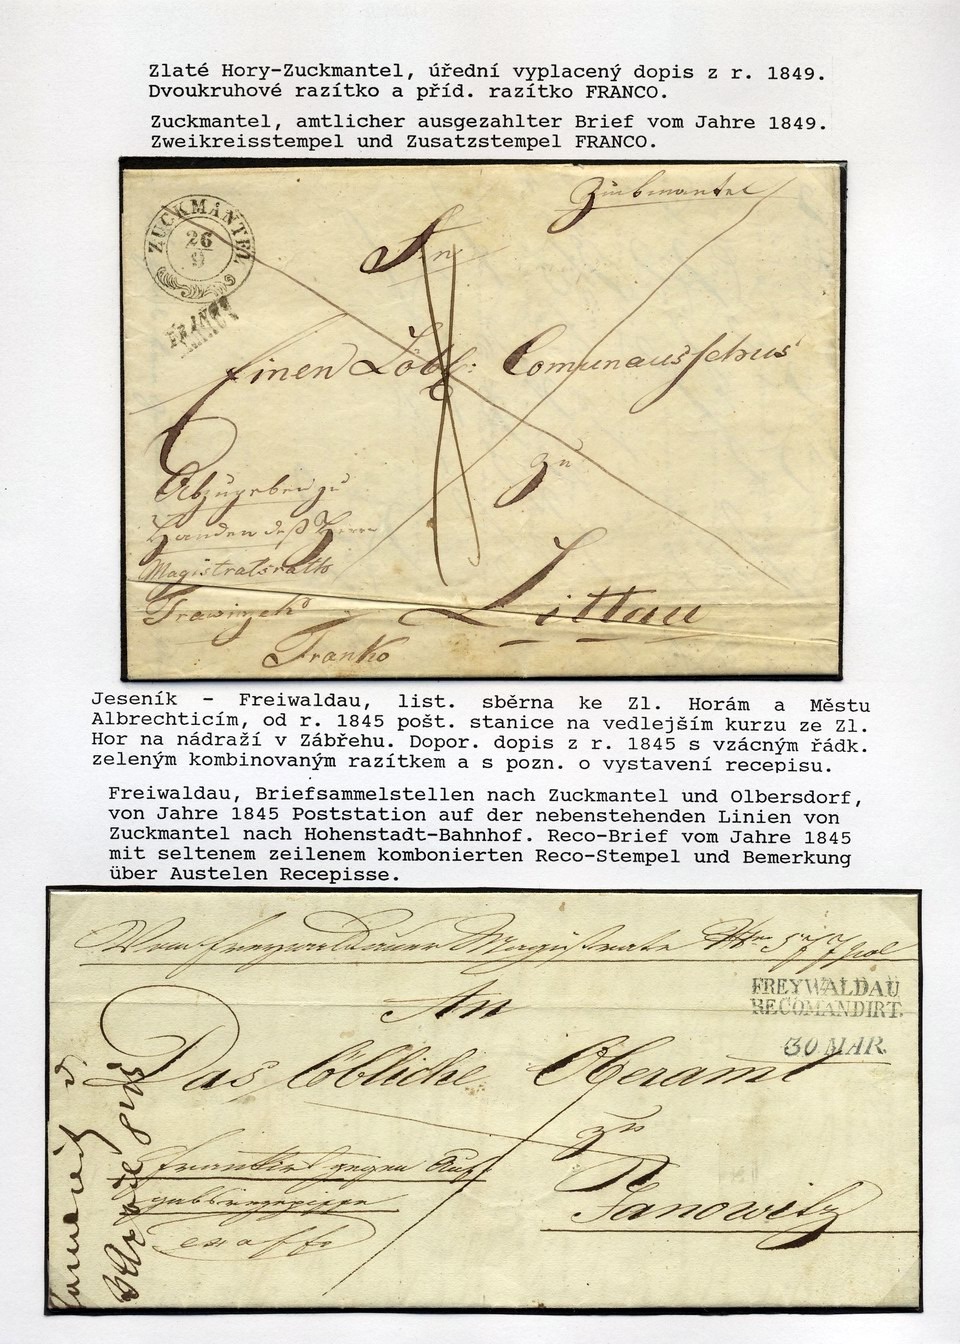 Zlaté Hory-Zuckmantel, úřední vyplacený dopis z r. 1849.
Dvoukruhové razítko a příd. razítko FRANCO.
Zuckmantel, amtlicher ausgezahlter Brief vom Jahre 1849.
Zweikreisstempel und Zusatzstempel FRANCO.
Zuckmantel
ZUCKMANTEL
26
9
An
FRANCO
Einen Löbl: Comunausschus
zu
Abzugeben zu
Handen deß Herrn
Magistratsrath
Littau
Franko
Jeseník - Freiwaldau, list. sběrna ke Zl. Horám a Městu
Albrechticím, od r. 1845 pošt. stanice na vedlejším kurzu ze Zl.
Hor na nádraží v Zábřehu. Dopor. dopis z r. 1845 s vzácným řádk.
zeleným kombinovaným razítkem a s pozn. o vystavení recepisu.
Freiwaldau, Briefsammelstellen nach Zuckmantel und Olbersdorf,
von Jahre 1845 Poststation auf der nebenstehenden Linien von
Zuckmantel nach Hohenstadt-Bahnhof. Reco-Brief vom Jahre 1845
mit seltenem zeilenem kombonierten Reco-Stempel und Bemerkung
über Austelen Recepisse.
Vom Freywaldauer Magistrate
FREYWALDAU
RECOMANDIRT.
30 MAR.
An
Das löbliche Oberamt
zu
Janowitz
frankirt gegen Auf-
gabsrezepisse
ex offo